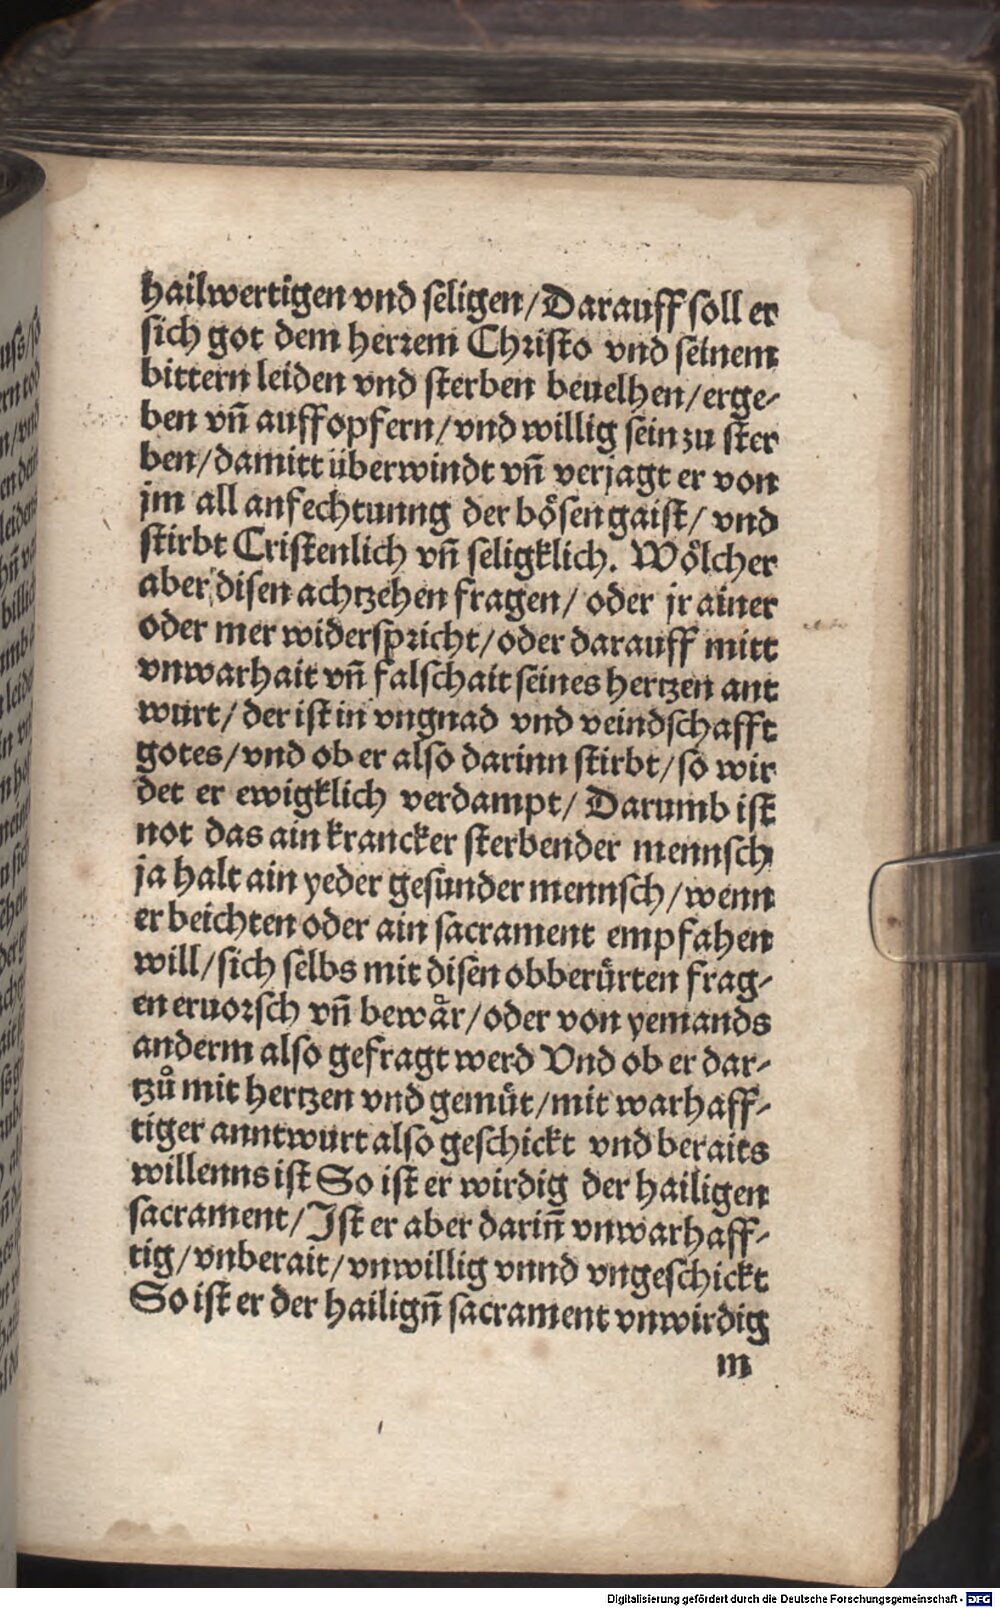 hailwertigen vnd seligen/Darauff soll er
sich got dem herrem Christo vnd seinem
bittern leiden vnd sterben beuelhen/erge-
ben vn̄ auffopfern/vnd willig sein zu ster
ben/damitt überwindt vn̄ verjagt er von
jm all anfechtunng der bösen gaist/ vnd
stirbt Cristenlich vn̄ seligklich. Wölcher
aber disen achtzehen fragen/ oder jr ainer
oder mer widerspricht/oder darauff mitt
vnwarhait vn̄ falschait seines hertzen ant
wurt/ der ist in vngnad vnd veindschafft
gotes/vnd ob er also darinn stirbt/so wir
det er ewigklich verdampt/ Darumb ist
not das ain krancker sterbender mennsch
ja halt ain yeder gesunder mennsch/wenn
er beichten oder ain sacrament empfahen
will/sich selbs mit disen obberürten frag-
en eruorsch vn̄ bewår/oder von yemands
anderm also gefragt werd Vnd ob er dar-
tzů mit hertzen vnd gemüt/mit warhaff-
tiger anntwurt also geschickt vnd beraits
willenns ist So ist er wirdig der hailigen
sacrament/Ist er aber darin̄ vnwarhaff-
tig/vnberait/vnwillig vnnd vngeschickt
So ist er der hailign̄ sacrament vnwirdig
m
Digitalisierung gefördert durch die Deutsche Forschungsgemeinschaft - DFG